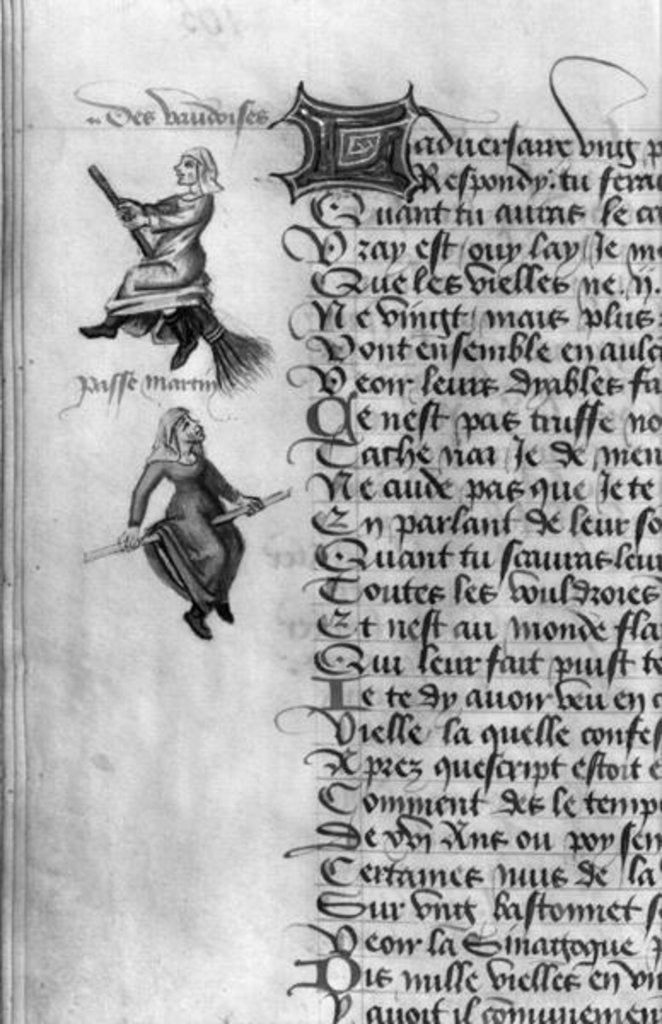 Des vaudoises
passe martin
adversaire vng p
Respondy. tu seras
Quant tu auras le ca
Vray est ouy lay Je me
Que les vielles ne .ij.
Ne vingt mais plus
Vont ensemble en aulc
Veoir leurs dyables fa
Ce nest pas truffe no
Cache nar Je de men
Ne cuide pas que Je te
En parlant de leur so
Quant tu scauras leur
Toutes les vouldroies
Et nest au monde fla
Qui leur fait puist te
Ie te dy avoir veu en c
Vielle la quelle confes
Aprez quescript estoit e
Comment des le temp
De xvi Ans ou poy sen
Certaines nuis de la
Sur vng bastonnet s
Veoir la Sinagogue p
Dis mille vielles en vn
Y avoit il comunemen